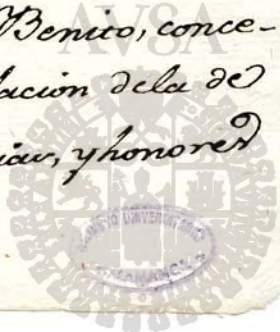 AVSA
Benito, conce-
lacion dela de
ias, y honores
ARCHIVO UNIVERSITARIO
SALAMANCA